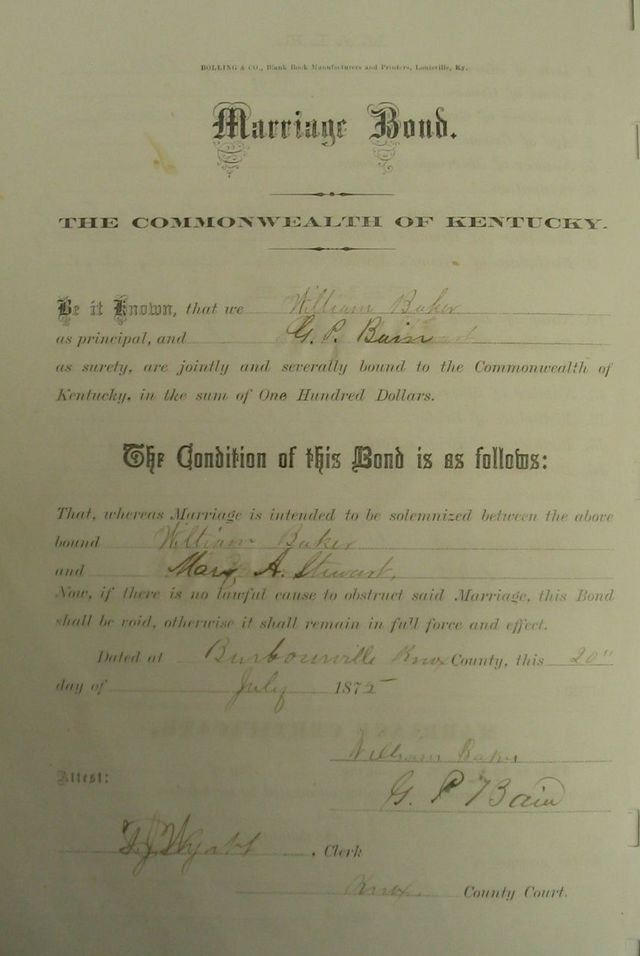 BOLLING & CO., Blank Book Manufacturers and Printers, Louisville, Ky.
Marriage Bond.
THE COMMONWEALTH OF KENTUCKY.
Be it Known, that we William Baker
as principal, and G. P. Bain
as surety, are jointly and severally bound to the Commonwealth of
Kentucky, in the sum of One Hundred Dollars.
The Condition of this Bond is as follows:
That, whereas Marriage is intended to be solemnized between the above
bound William Baker
and Mary A. Stewart,
Now, if there is no lawful cause to obstruct said Marriage, this Bond
shall be void, otherwise it shall remain in full force and effect.
Dated at Burbourville Knox County, this 20"
day of July 1875
William Baker
Attest:
G. P Bain
Wyatt, Clerk
Knox County Court.